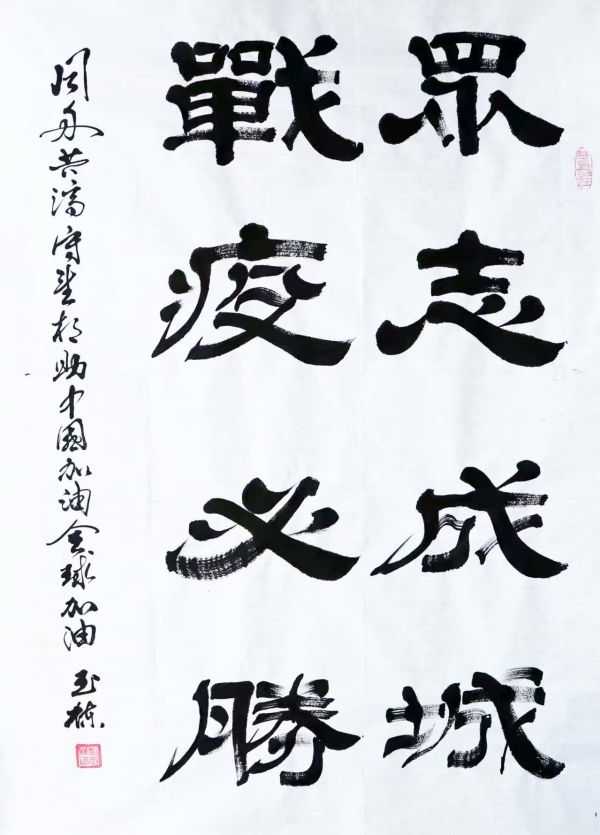 眾志成城
戰疫必勝
同舟共濟守望相助中國加油全球加油 玉棟